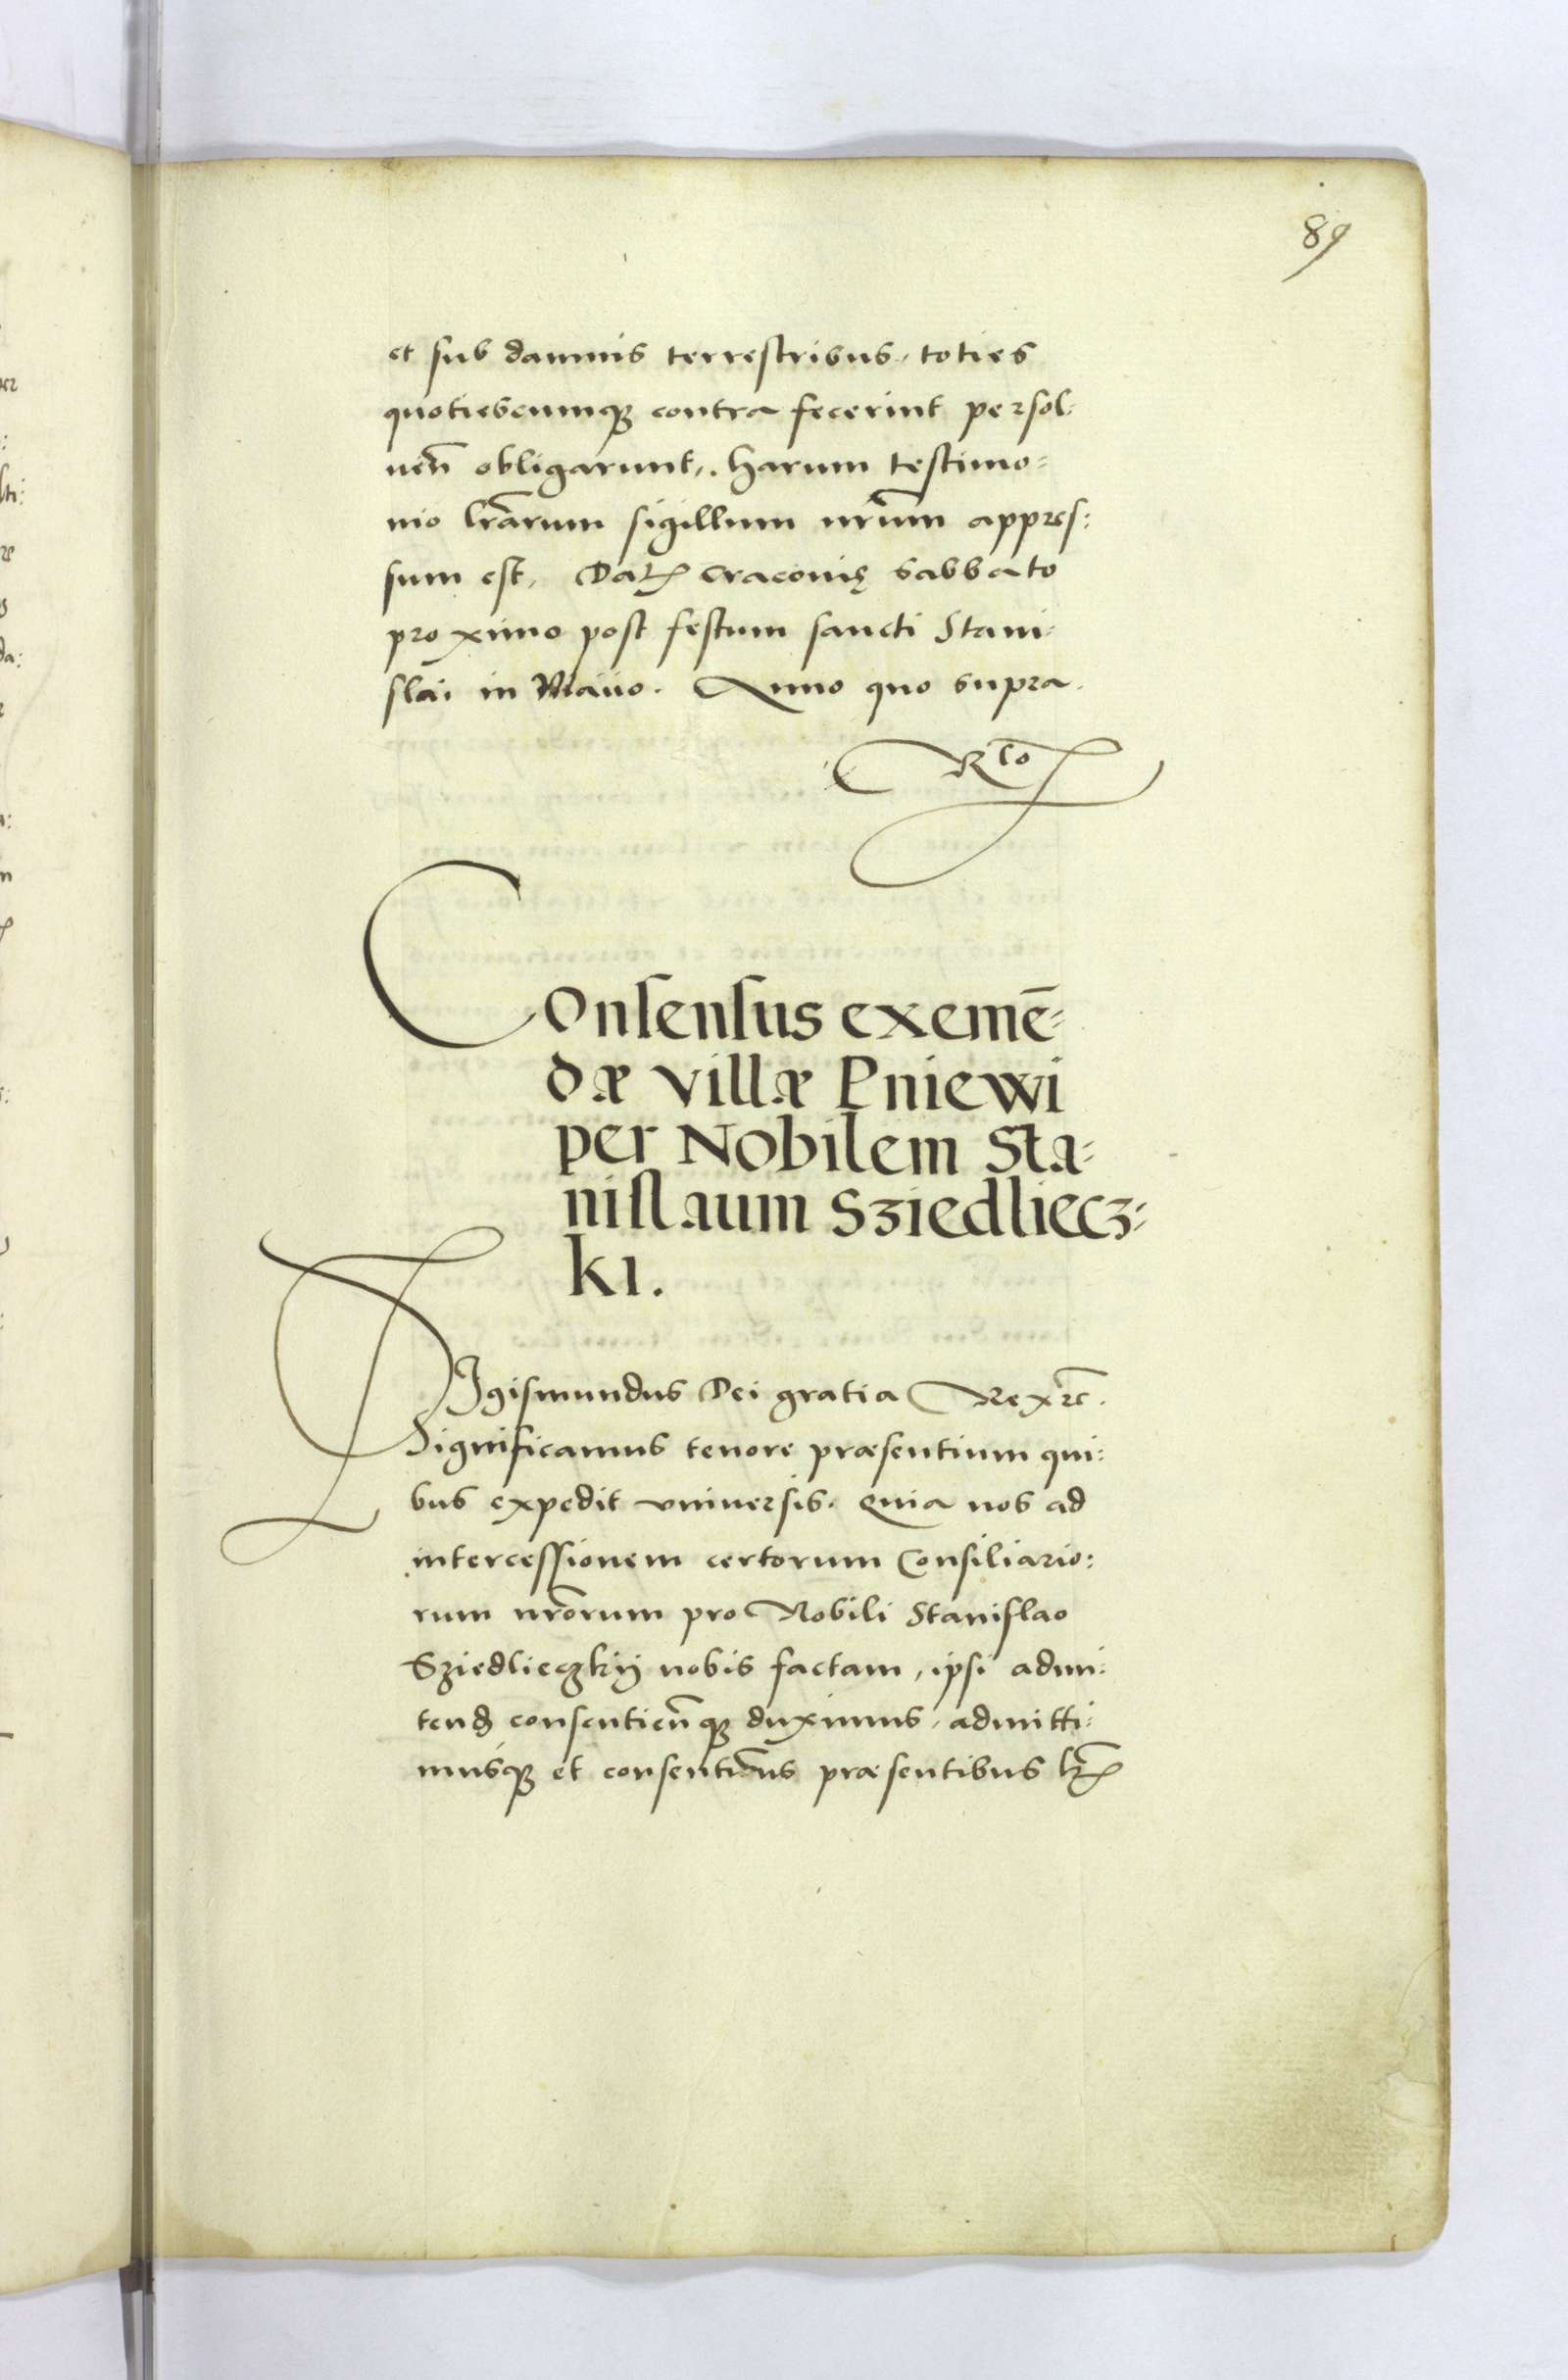 89
et sub damnis terrestribus, toties
quotiescumq₃ contra fecerint persol:
uen̄ obligarunt,. harum testimo=
nio lr̄arum sigillum nr̄um appres:
sum est, Datꝭ Cracovię sabbato
proximo post festum sancti Stani:
slai in Maiio. Anno quo supra.
Rᶜᵒ
Consensus exemē=
dæ villæ Pniewi
per Nobilem Sta=
nislaum Sziedliecz=
ki.
SIgismundus Dei gratia Rex ⁊c̄.
Significamus tenore præsentium qui:
bus expedit vniversis. Quia nos ad
intercessionem certorum Consiliario:
rum nr̄orum pro Nobili Stanislao
Sziedlieczkij nobis factam, ipsi admi:
tend̄ consentien̄q₃ duximus, admitti:
musq₃ et consentim̄us præsentibus lr̄ꝭ